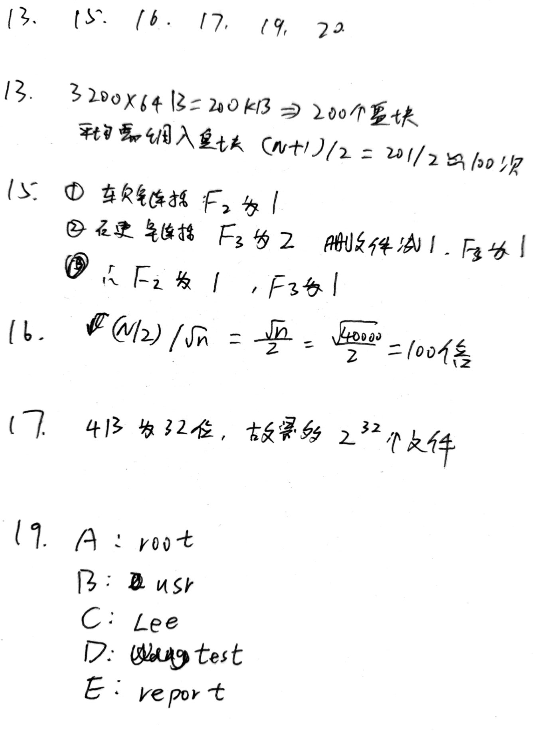 13. 15. 16. 17. 19. 20
13. 3200×64B=200KB⇒200个盘块
平均需调入盘块 (N+1)/2=201/2≈100次
15. ① 软链接 F2为1
② 硬链接 F3为2 删文件减1. F3为1
③ ∴ F2为1 , F3为1
16. (N/2)/√n = √n/2 = √40000/2 =100倍
17. 4B为32位, 故需 2^32个文件
19. A: root
B: usr
C: Lee
D: test
E: report